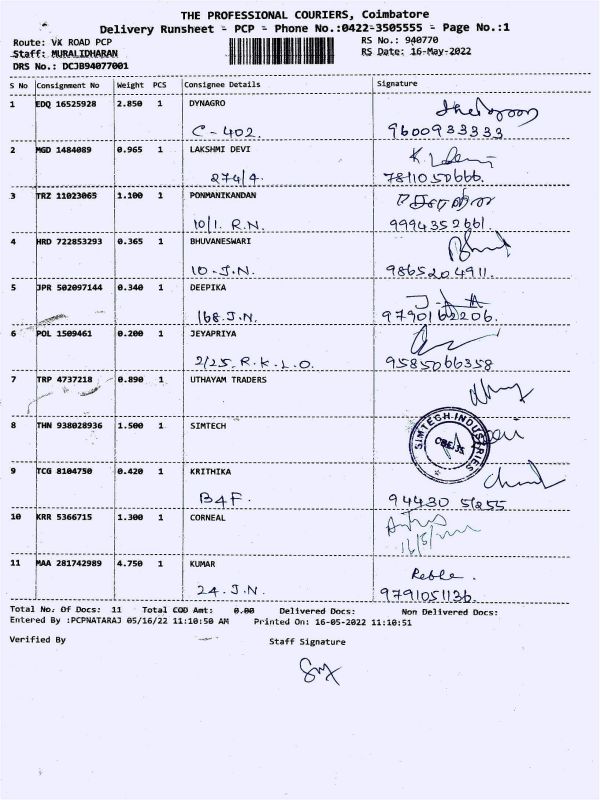 THE PROFESSIONAL COURIERS, Coimbatore
Delivery Runsheet - PCP - Phone No.:0422-3505555 - Page No.:1
Route: VK ROAD PCP RS No.: 940770
Staff: MURALIDHARAN RS Date: 16-May-2022
DRS No.: DCJB94077001
S No Consignment No Weight PCS Consignee Details Signature
1 EDQ 16525928 2.850 1 DYNAGRO
C-402. 9600933333
2 MGD 1484089 0.965 1 LAKSHMI DEVI
274/4. 7811050666.
3 TRZ 11023065 1.100 1 PONMANIKANDAN
10/1. R.N. 9994352661.
4 HRD 722853293 0.365 1 BHUVANESWARI
10.J.N. 9865204911.
5 JPR 502097144 0.340 1 DEEPIKA
168.J.N. 9790162206.
6 POL 1509461 0.200 1 JEYAPRIYA
2/25.R.K.L.O. 9585066358
7 TRP 4737218 0.890 1 UTHAYAM TRADERS
8 THN 938028936 1.500 1 SIMTECH
SIMTECH INDUSTRIES
9 TCG 8104750 0.420 1 KRITHIKA
B4F. 94430 51255
10 KRR 5366715 1.300 1 CORNEAL
11 MAA 281742989 4.750 1 KUMAR
24.J.N. 9791051136.
Total No. Of Docs: 11 Total COD Amt: 0.00 Delivered Docs: Non Delivered Docs:
Entered By :PCPNATARAJ 05/16/22 11:10:50 AM Printed On: 16-05-2022 11:10:51
Verified By Staff Signature